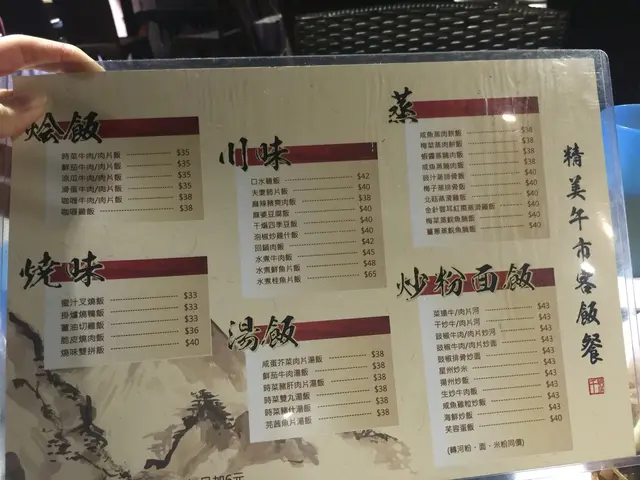 精美午市客飯餐
燴飯
時菜牛肉/肉片飯 $35
鮮茄牛肉/肉片飯 $35
涼瓜牛肉/肉片飯 $35
滑蛋牛肉/肉片飯 $35
咖喱牛肉/肉片飯 $38
咖喱雞飯 $38
燒味
蜜汁叉燒飯 $33
掛爐燒鴨飯 $33
薑油切雞飯 $33
脆皮燒肉飯 $36
燒味雙拼飯 $40
川味
口水雞飯 $42
夫妻肺片飯 $40
麻辣豬爽肉飯 $38
麻婆豆腐飯 $38
干煸四季豆飯 $40
泡椒炒雞什飯 $40
回鍋肉飯 $42
水煮牛肉飯 $45
水煮鮮魚片飯 $48
水煮桂魚片飯 $65
湯飯
咸蛋芥菜肉片湯飯 $38
鮮茄牛肉湯飯 $38
時菜豬肝肉片湯飯 $38
時菜雙丸湯飯 $38
時菜豬什湯飯 $38
芫茜魚片湯飯 $38
蒸
咸魚蒸肉餅飯 $38
梅菜蒸肉餅飯 $38
蝦醬蒸腩肉飯 $38
咸魚蒸腩肉飯 $38
豉汁蒸排骨飯 $40
梅子蒸排骨飯 $40
北菇蒸滑雞飯 $40
金針雲耳紅棗蒸滑雞飯 $40
梅菜蒸鯇魚腩飯 $40
薑蔥蒸鯇魚腩飯 $40
炒粉面飯
菜遠牛/肉片河 $43
干炒牛/肉片河 $43
豉椒牛肉/肉片炒河 $43
豉椒牛肉/肉片炒面 $43
豉椒排骨炒面 $43
星州炒米 $43
揚州炒飯 $43
生炒牛肉飯 $43
咸魚雞粒炒飯 $43
海鮮炒飯 $43
芙蓉蛋飯 $40
(轉河粉、面、米粉同價)